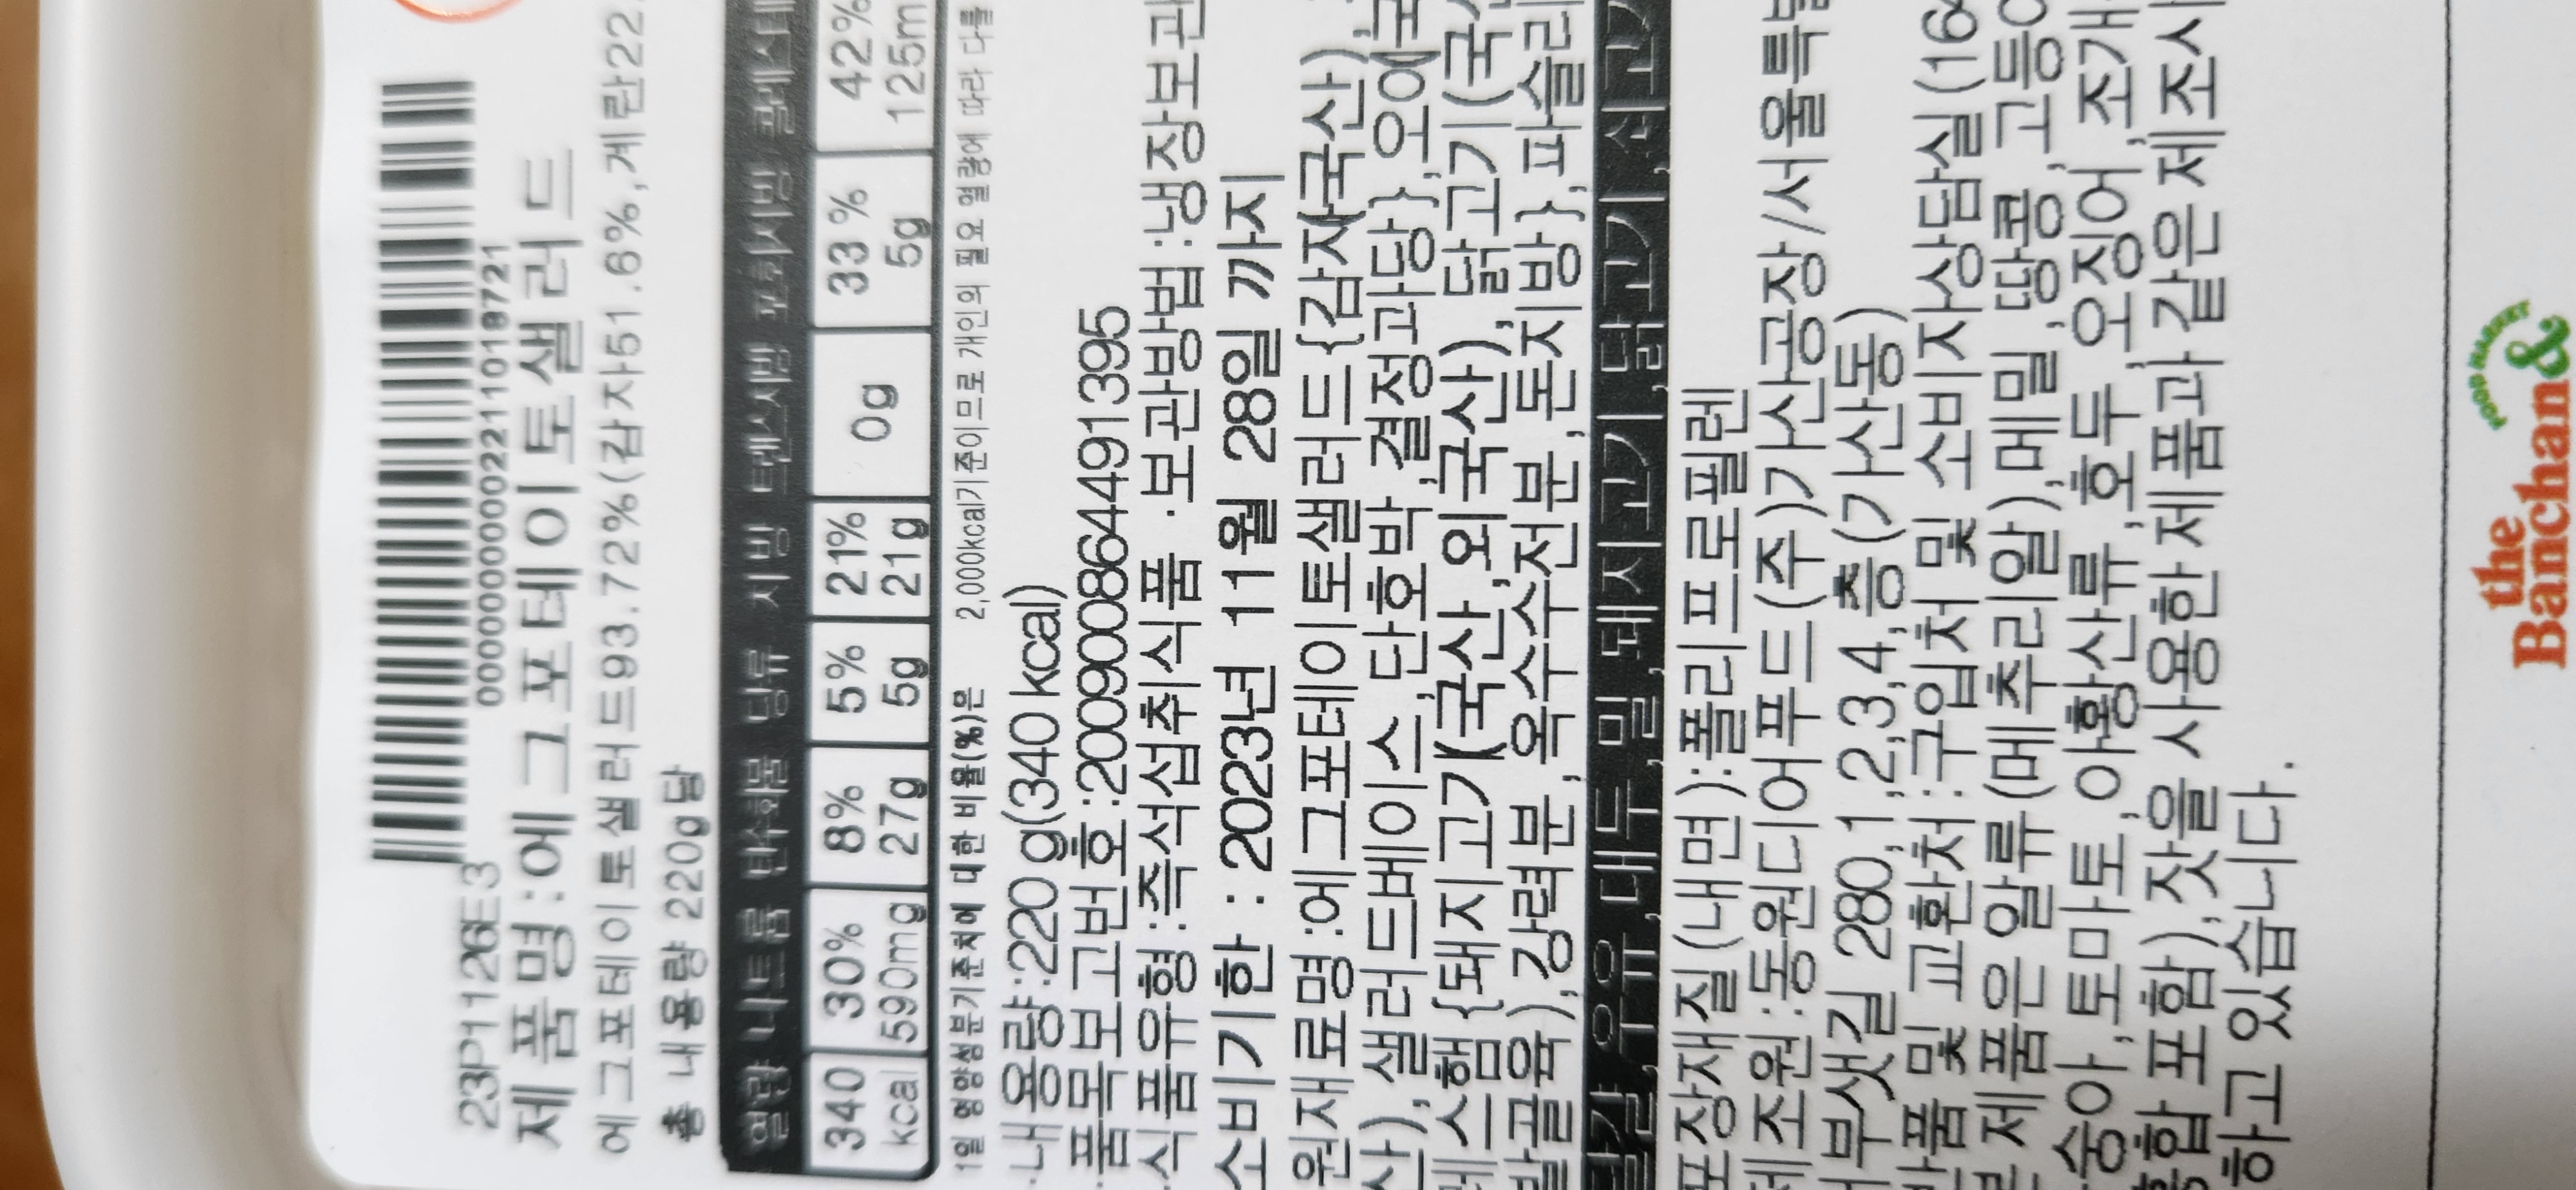 0000000000022110118721
23P1126E3
제품명:에그포테이토샐러드
에그포테이토샐러드93.72%(감자51.6%,계란22.
총 내용량 220g당
열량 나트륨 탄수화물 당류 지방 트랜스지방 포화지방 콜레스테
340 30% 8% 5% 21% 0g 33% 42%
kcal 590mg 27g 5g 21g 5g 125m
1일 영양성분기준치에 대한 비율(%)은 2,000kcal기준이므로 개인의 필요 열량에 따라 다를
·내용량:220 g(340 kcal)
품목보고번호:200900864491395
·식품유형:즉석섭취식품 ·보관방법:냉장보관
소비기한 : 2023년 11월 28일 까지
원재료명:에그포테이토샐러드{감자(국산),
산),샐러드베이스,단호박,결정과당},오이(국
스햄{돼지고기(국산,외국산),닭고기(국산
발골육),강력분,옥수수전분,돈지방},파슬리
달걀,우유,대두,밀,돼지고기,닭고기,쇠고기
포장재질(내면):폴리프로필렌
제조원:동원디어푸드(주)가산공장/서울특별
부샛길 280,1,2,3,4,층(가산동)
반품 및 교환처:구입처 및 소비자상담실(164
본 제품은 알류(메추리알),메밀,땅콩,고등어
숭아,토마토,아황산류,호두,오징어,조개
홍합 포함),잣을 사용한 제품과 같은 제조시
하고 있습니다.
FOOD MARKET
the
Banchan&